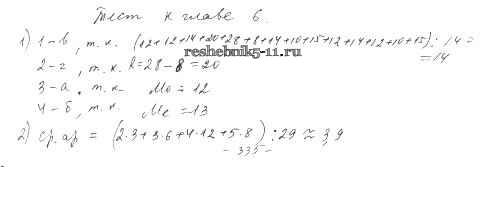 Тест к главе 6.
1) 1-в, т.к. (12+12+14+20+28+8+14+10+15+12+14+12+10+15) : 14 =
reshebnik5-11.ru
=14
2-г, т.к. R=28-8=20
3-а, т.к. Мо = 12
4-б, т.к. Ме = 13
2) ср.ар = (2·3+3·6+4·12+5·8) : 29 ≈ 3,9
- 333 -